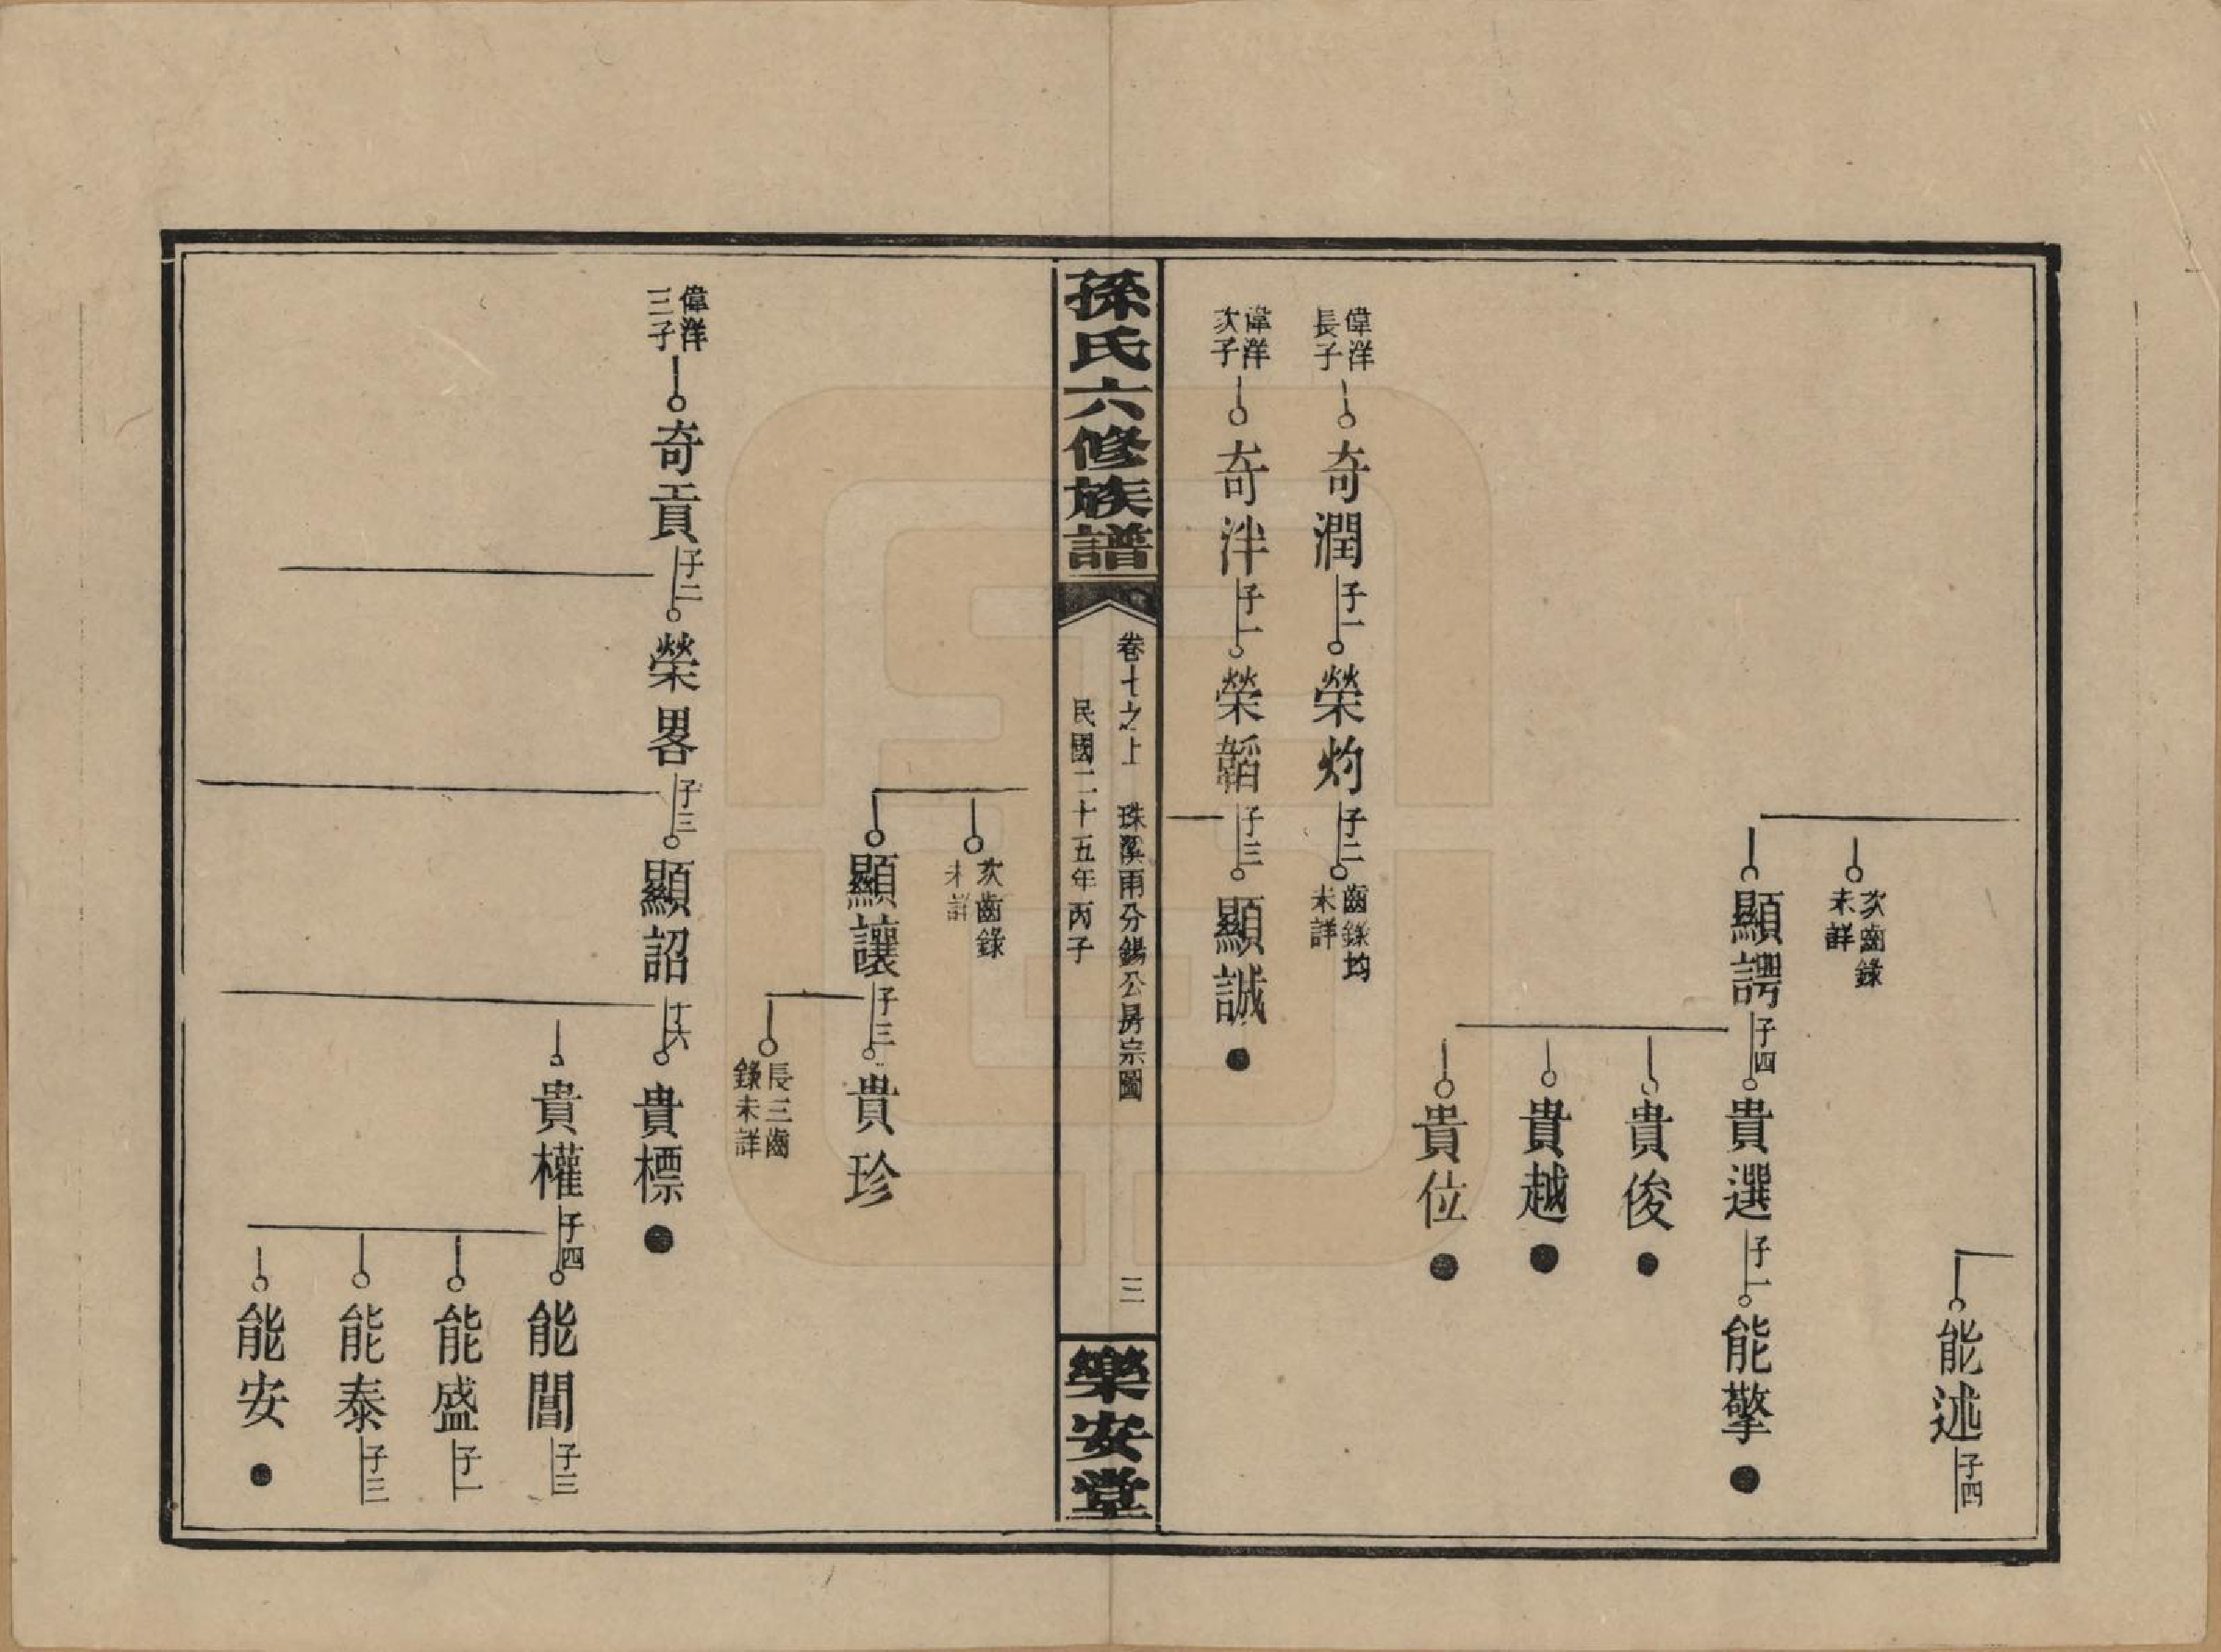 能述 子四
次齒錄
未詳
顯諤 子四 貴選 子一 能擎
貴俊
貴越
貴位
偉洋
長子
奇潤 子一 榮灼 子二
齒錄均
未詳
偉洋
次子
奇泮 子一 榮韜 子三 顯誠
孫氏六修族譜
卷七之上 珠溪雨分錫公房宗圖 三
民國二十五年丙子
樂安堂
次齒錄
未詳
顯讓 子三 貴珍
長三齒
錄未詳
偉洋
三子
奇貢 子二 榮畧 子三 顯詔 子六 貴標
貴權 子四 能誾 子三
能盛 子一
能泰 子三
能安